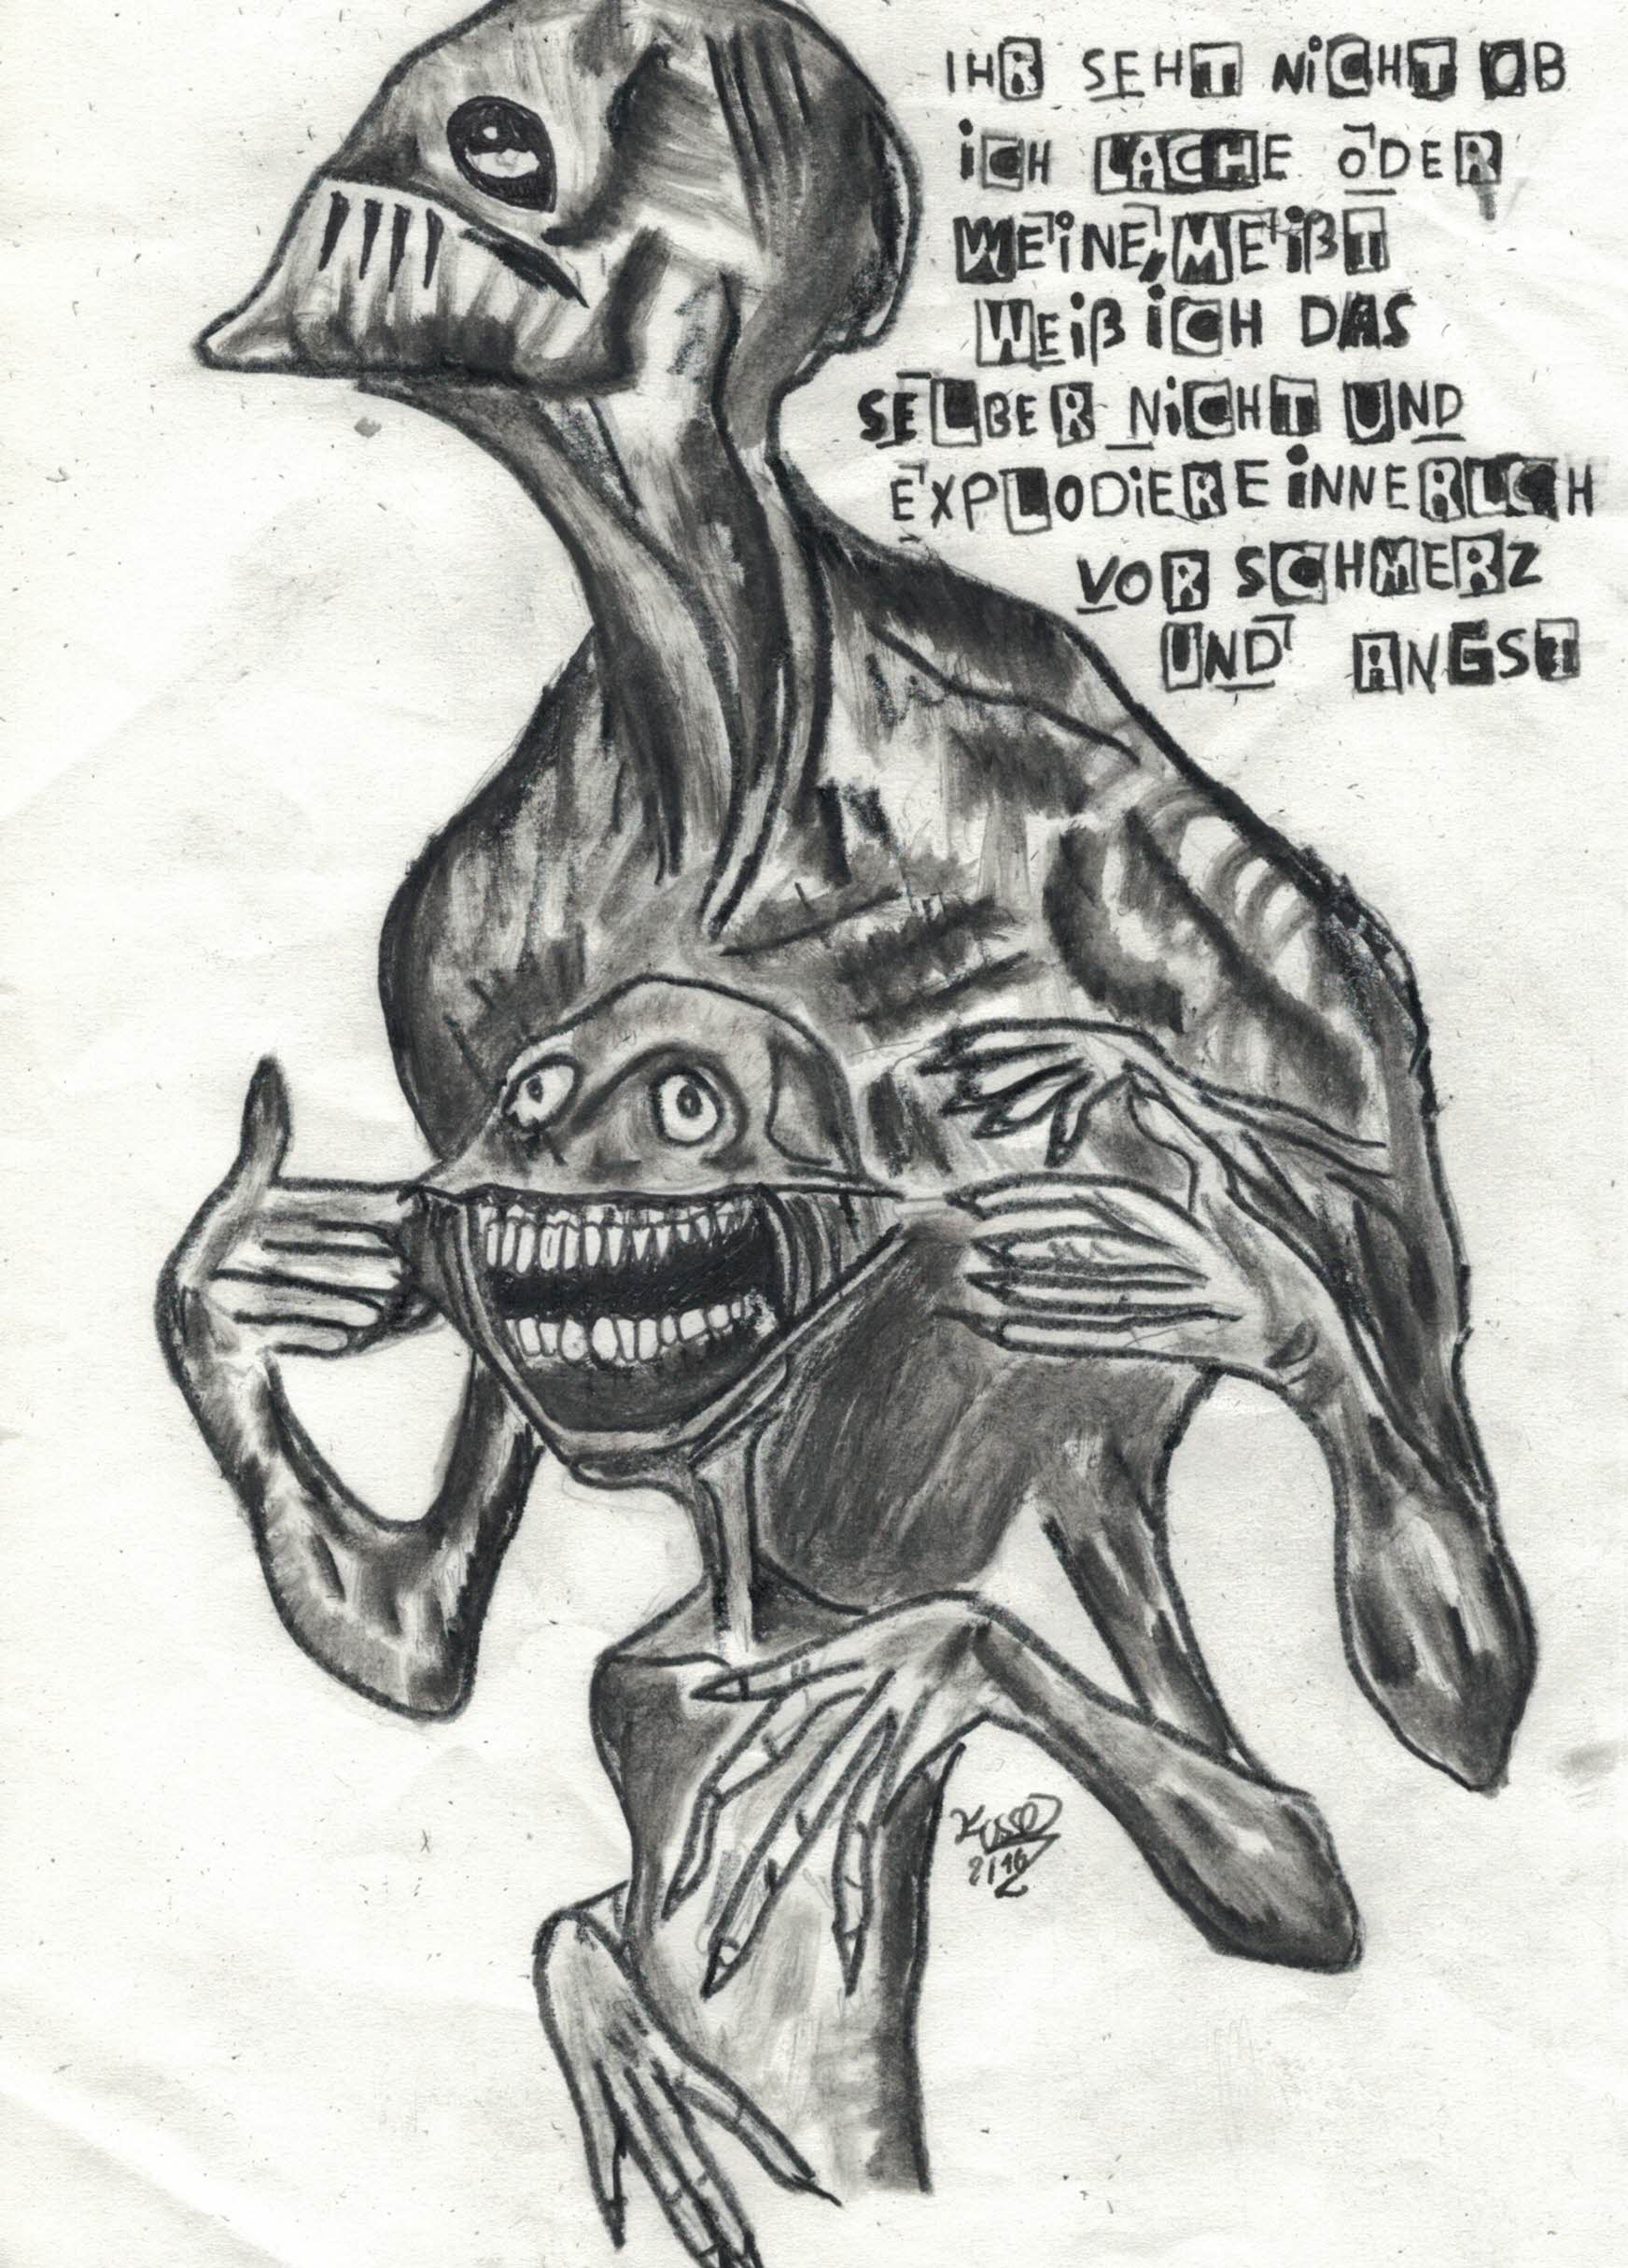 IHR SEHT NiCHT OB
iCH LACHE ODER
WEiNE, MEißT
WEiß iCH DAS
SELBER NiCHT UND
EXPLODiERE iNNERLiCH
VOR SCHMERZ
UND ANGST